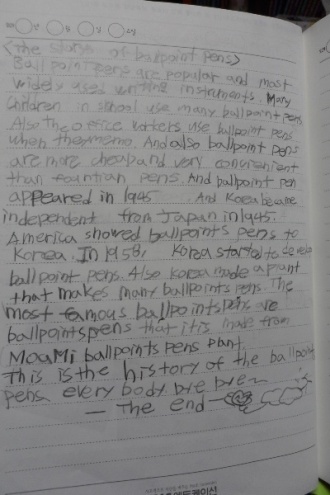 <The story of ballpoint pens>
Ball point pens are popular and most
widely used writing instruments. Many
Children in school use many ballpoint pens
Also the office workers use ballpoint pens
when they memo. And also ballpoint pens
are more cheap and very convenient
than fountian pens. And ballpoint pen
appeared in 1945 And Korea became
independent from Japan in 1945.
America showed ballpoints pens to
Korea. In 1958, Korea started to develop
ballpoint pens. Also Korea made a pant
that makes many ballpoint pens. The
most famous ballpoints pens are
ballpoints pens that it is made from
MoaMi ballpoints pens plant.
This is the history of the ballpoint
pens every body bye bye~
— The end —